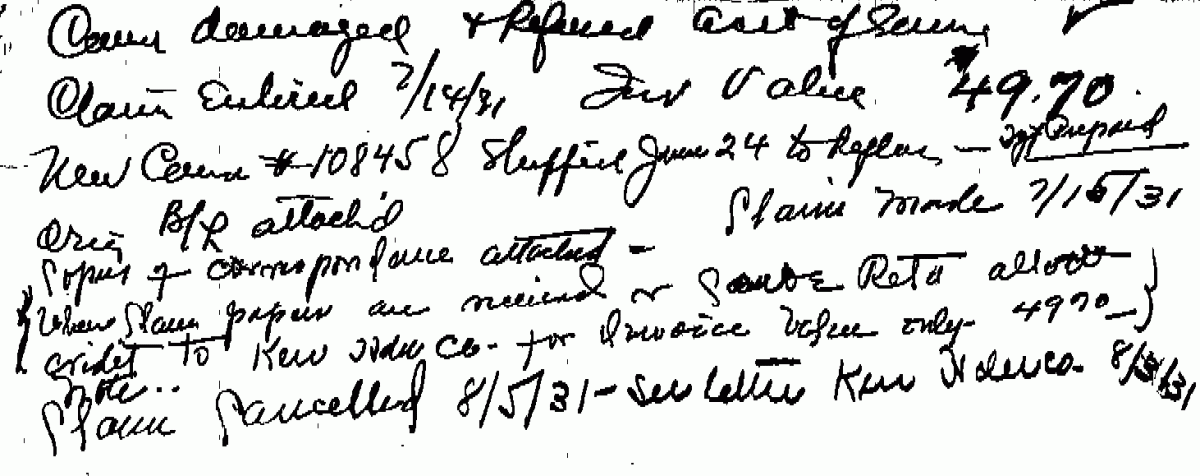 Case damaged & Refused Cost of Same
Claim Entered 7/14/31 Inv Value $49.70
New Case #108458 Shipped June 24 to Replace - Prepaid
Orig B/L attach'd Claim Made 7/15/31
Copies of correspondence attached -
When Claim papers are received or Retd allow
credit to Kew Co. for Invoice Value only 49 70
Note..
Claim Cancelled 8/5/31 - See letter Kew 8/3/31